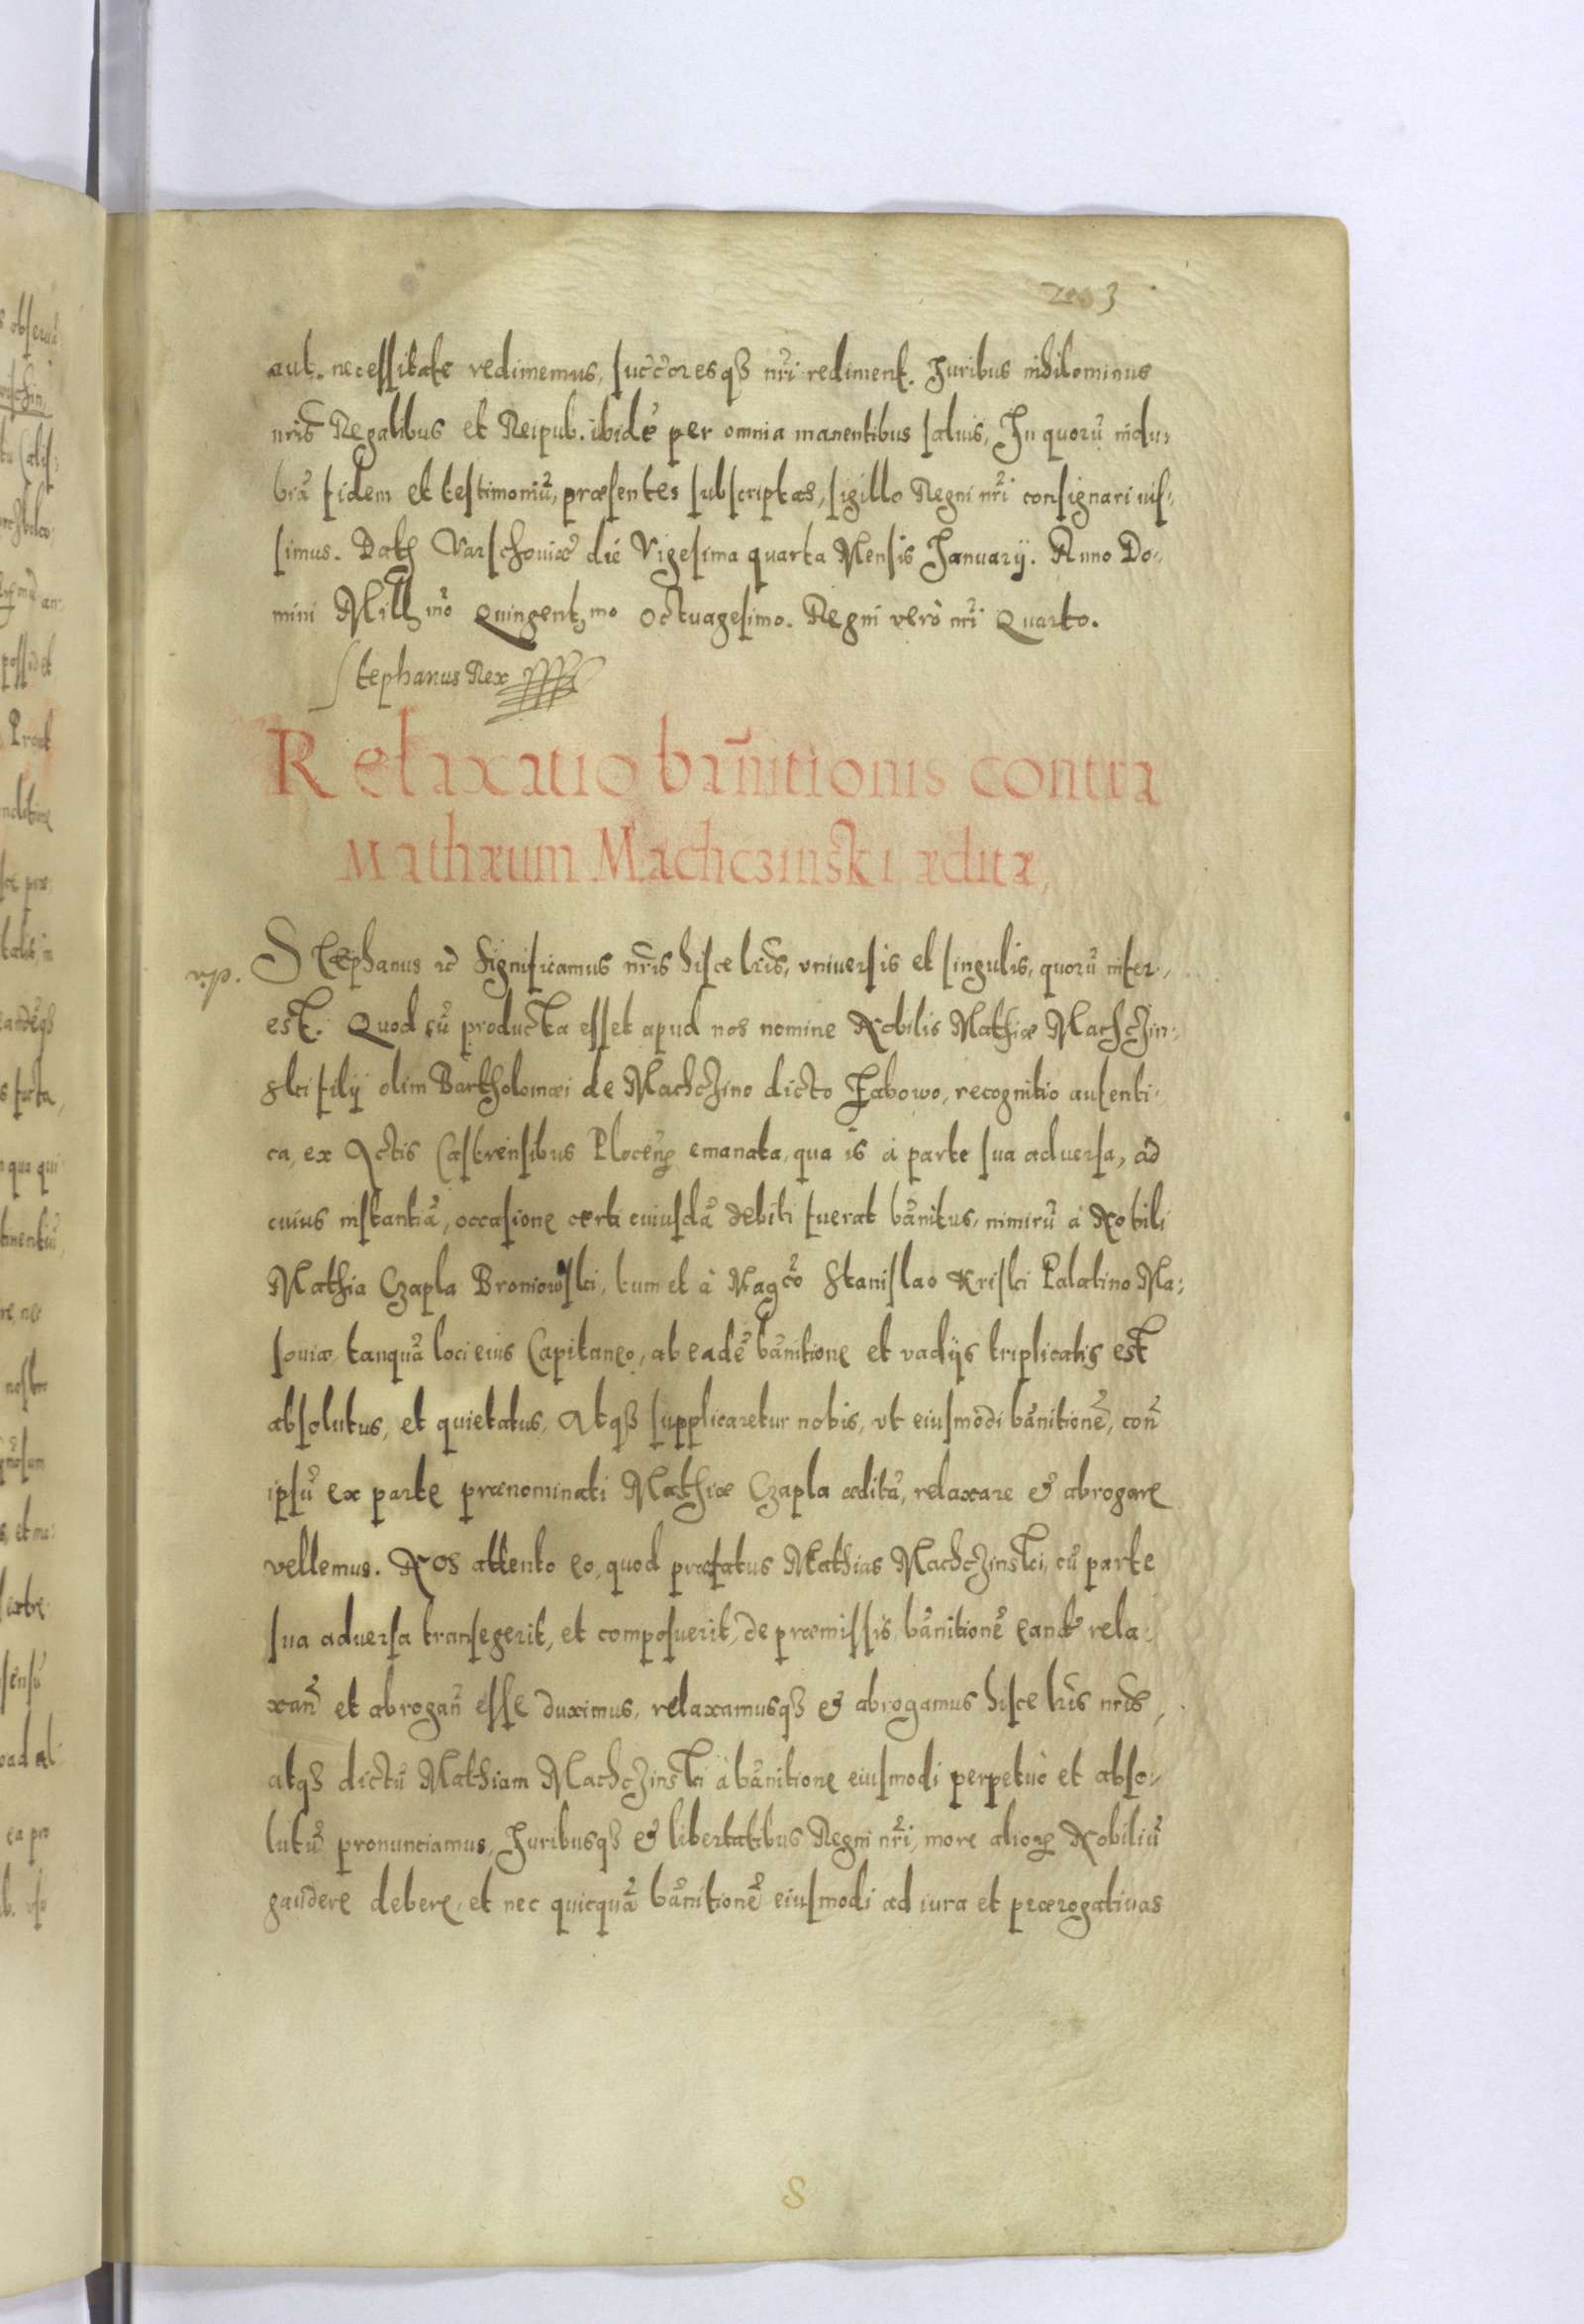 aut necessitate redimemus, succ̃oresqȝ nr̃i rediment. Juribus nihilominus
nr̃is Regalibus et Reipub. ibidẽ per omnia manentibus saluis, In quorũ indu-
biã fidem et testimoniũ, præsentes subscriptas, sigillo Regni nr̃i consignari ius-
simus. Datꝫ Varschouiæ die Vigesima quarta Mensis Januarij. Anno Do-
mini Millꝫmo Quingentꝫmo Octuagesimo. Regni verò nr̃i Quarto.
Stephanus Rex
Relaxatio bañitionis contra
Mathæum Machczinski æditæ,
Stephanus ꝛc̃ Significamus nr̃is hisce lr̃is, vniuersis et singulis, quorũ inter-
est. Quod cũ producta esset apud nos nomine Nobilis Mathiæ Machczin-
ski filij olim Bartholomæi de Machczino dicto Łabowo, recognitio autenti-
ca, ex Actis Castrensibus Plocenꝫ emanata, qua is à parte sua aduersa, ad
cuius instantiã, occasione certi cuiusdã debiti fuerat bãnitus, nimirũ à Nobili
Mathia Czapla Broniowski, tum et à Magc̃o Stanislao Kriski Palatino Ma-
souiæ, tanquã loci eius Capitaneo, ab eadẽ bãnitione et vadijs triplicatis est
absolutus, et quietatus, Atqȝ supplicaretur nobis, vt eiusmodi bãnitionẽ, coñ
ipsũ ex parte prænominati Mathiæ Czapla æditã, relaxare & abrogare
vellemus. Nos attento eo, quod præfatus Mathias Machczinski, cũ parte
sua aduersa transegerit, et composuerit, de præmissis, bãnitionẽ eand̃ rela-
xañ et abrogañ esse duximus, relaxamusqȝ & abrogamus hisce lr̃is nr̃is,
atqȝ dictũ Mathiam Machczinski à bãnitione eiusmodi perpetuò et abso-
lutũ pronunciamus, Juribusqȝ & libertatibus Regni nr̃i, more alioꝝ Nobiliũ
gaudere debere, et nec quicquã bãnitionẽ eiusmodi ad iura et prærogatiuas
S